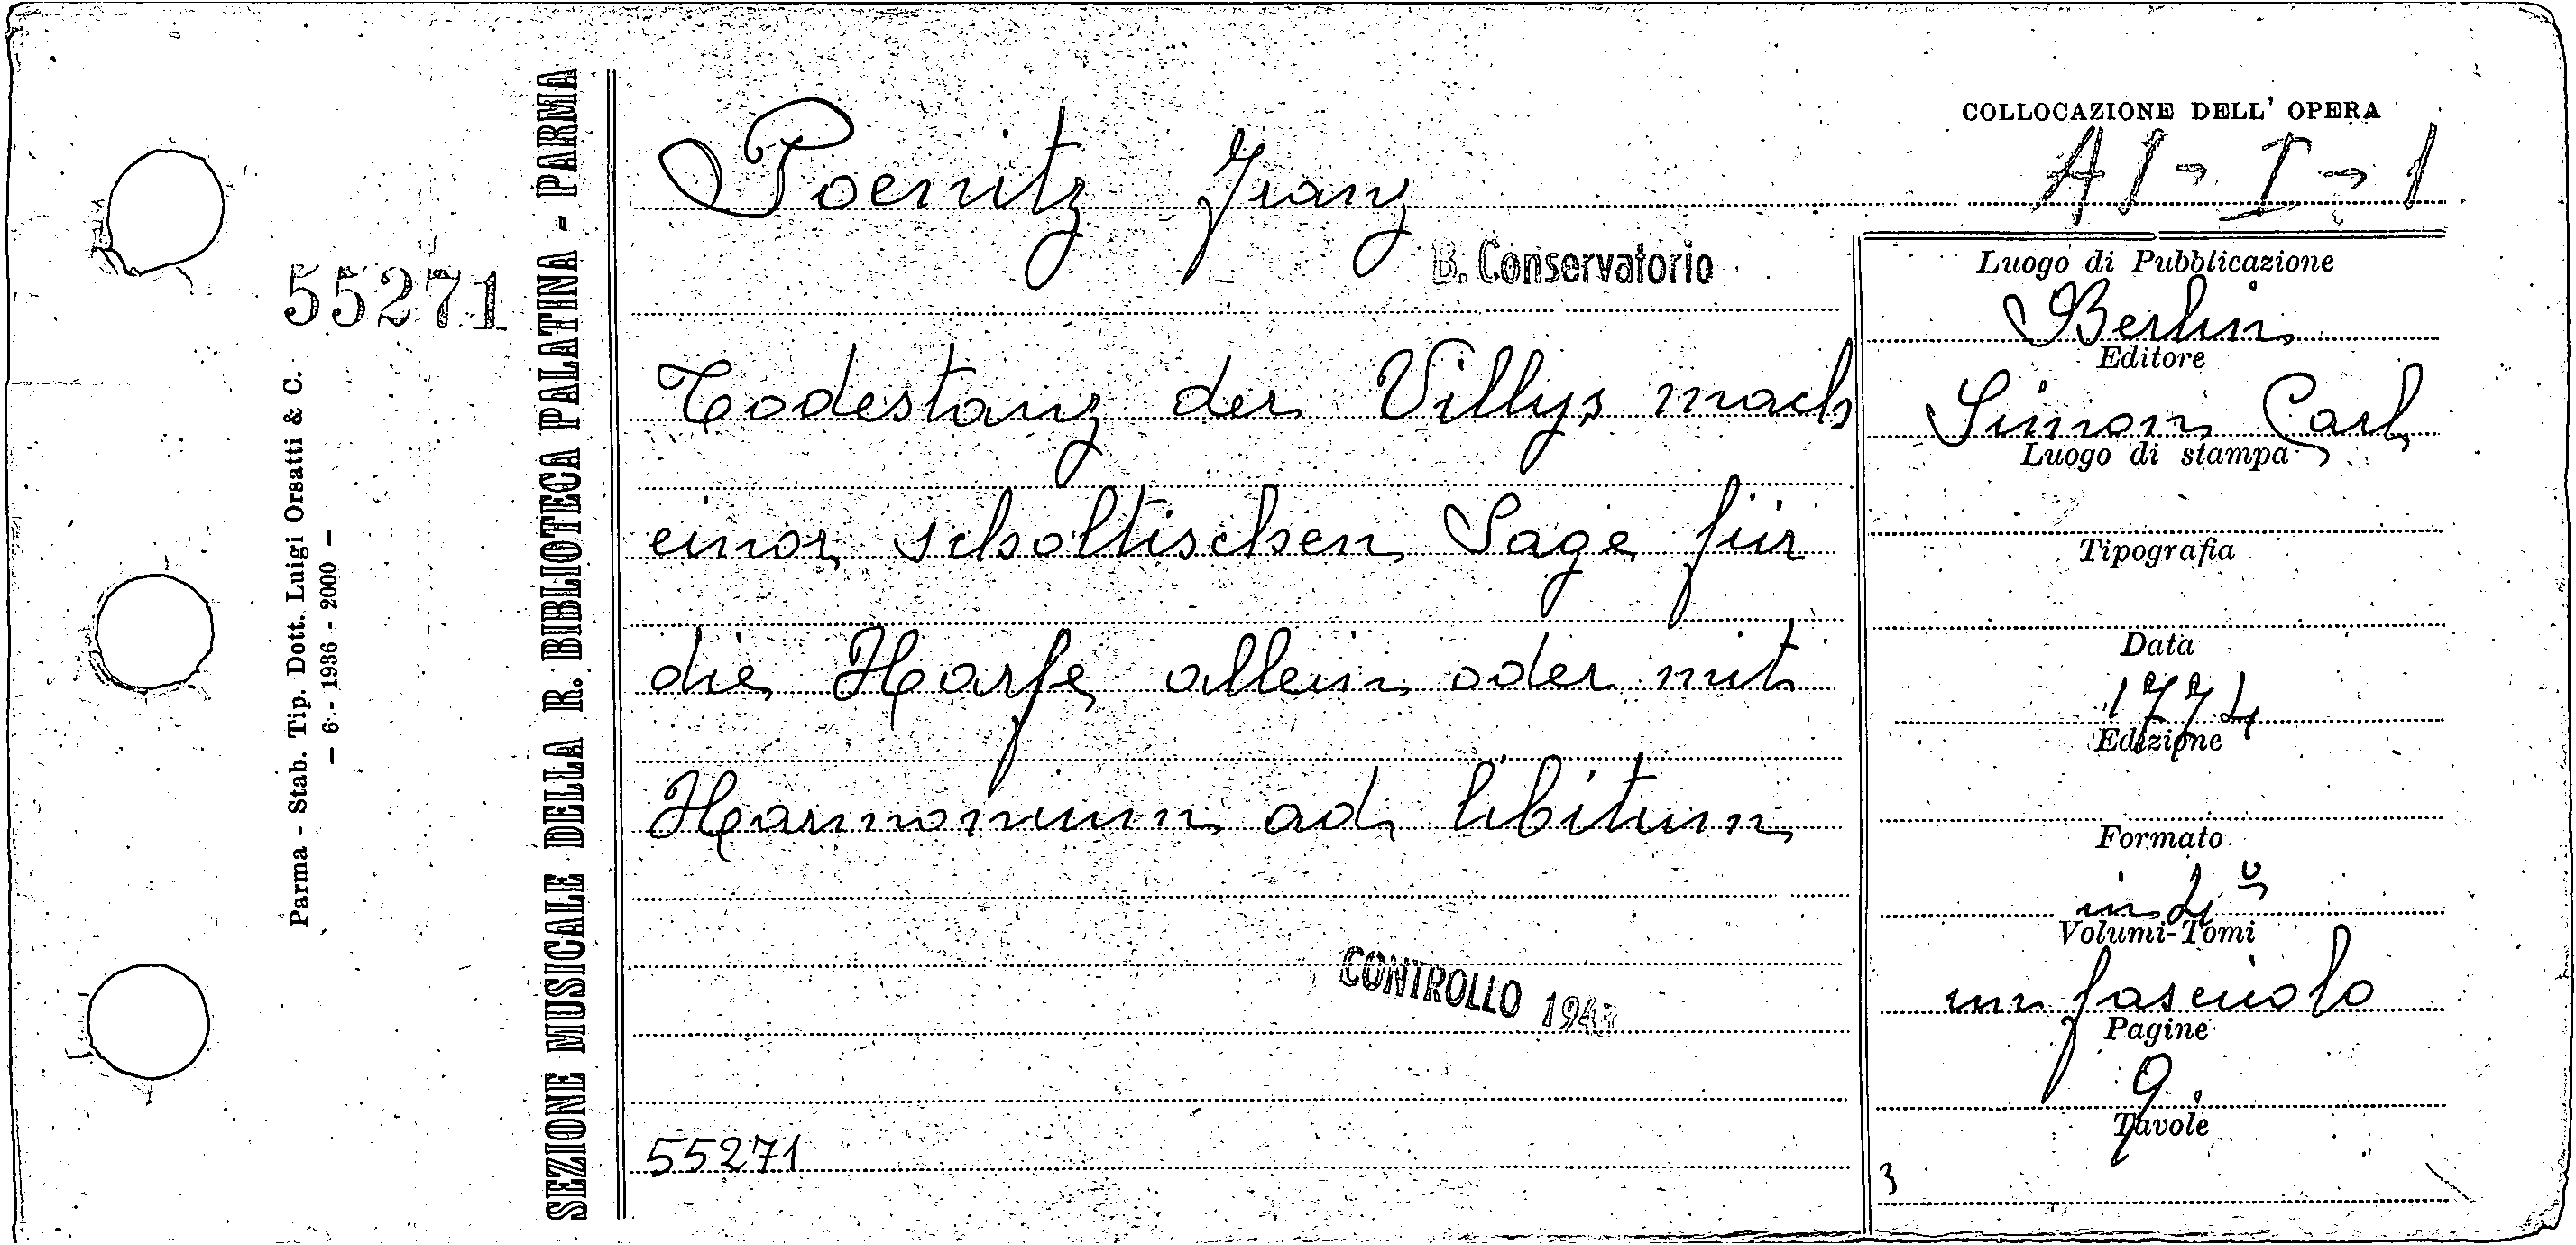 COLLOCAZIONE DELL' OPERA
A1 - I - 1
Poenitz Franz
B. Conservatorio
Todestanz der Villys nach
einor schottischen Sage für
die Harfe allein oder mit
Harmonium ad libitum
CONTROLLO
55271
Luogo di Pubblicazione
Berlin
Editore
Simon Carl
Luogo di stampa
Tipografia
Data
1774
Edizione
Formato
in 4º
Volumi-Tomi
un fascicolo
Pagine
9
Tavole
3
55271
Parma - Stab. Tip. Dott. Luigi Orsatti & C.
— 6 - 1936 - 2000 —
SEZIONE MUSICALE DELLA R. BIBLIOTECA PALATINA - PARMA